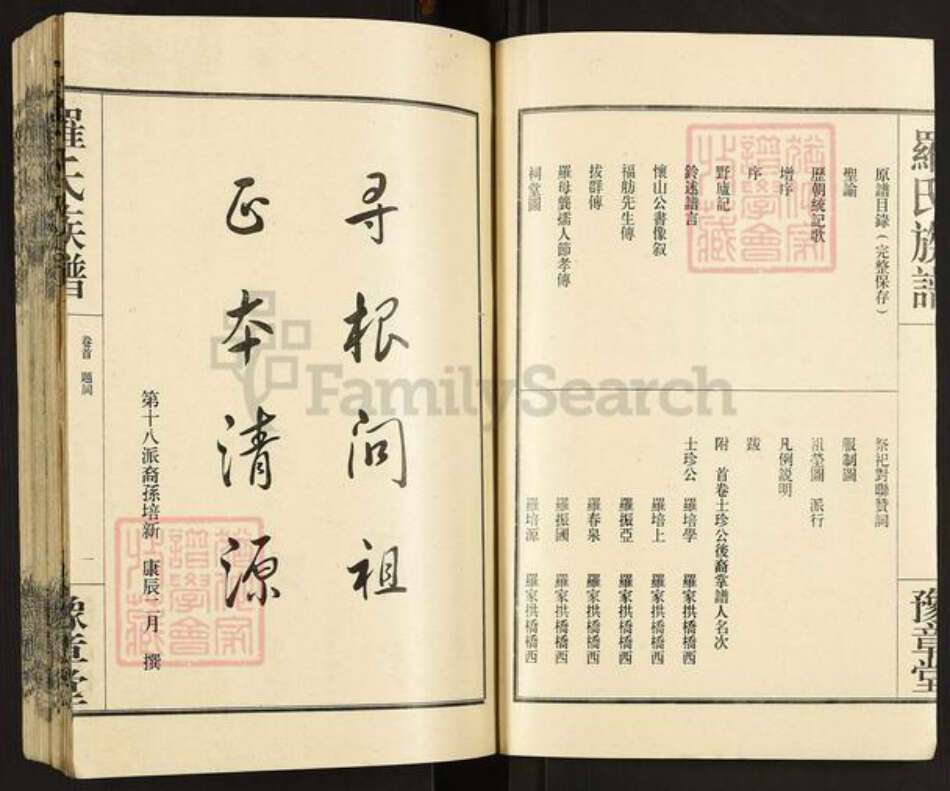 羅氏族譜
豫章堂
原譜目錄(完整保存)
聖諭
歷朝統記歌
增序
序
野廬記
鈴述譜言
懷山公書像叙
福舫先生傳
拔群傳
羅母龔孺人節孝傳
祠堂圖
祭祀對聯贊詞
服制圖
祖塋圖 派行
凡例説明
跋
附 首卷士珍公後裔掌譜人名次
士珍公 羅培學 羅家拱橋橋西
羅培上 羅家拱橋橋西
羅振亞 羅家拱橋橋西
羅春泉 羅家拱橋橋西
羅振國 羅家拱橋橋西
羅培源 羅家拱橋橋西
寻根问祖
正本清源
第十八派裔孫培新 康辰二月 撰
羅氏族譜
卷首 題詞
一
豫章堂
FamilySearch